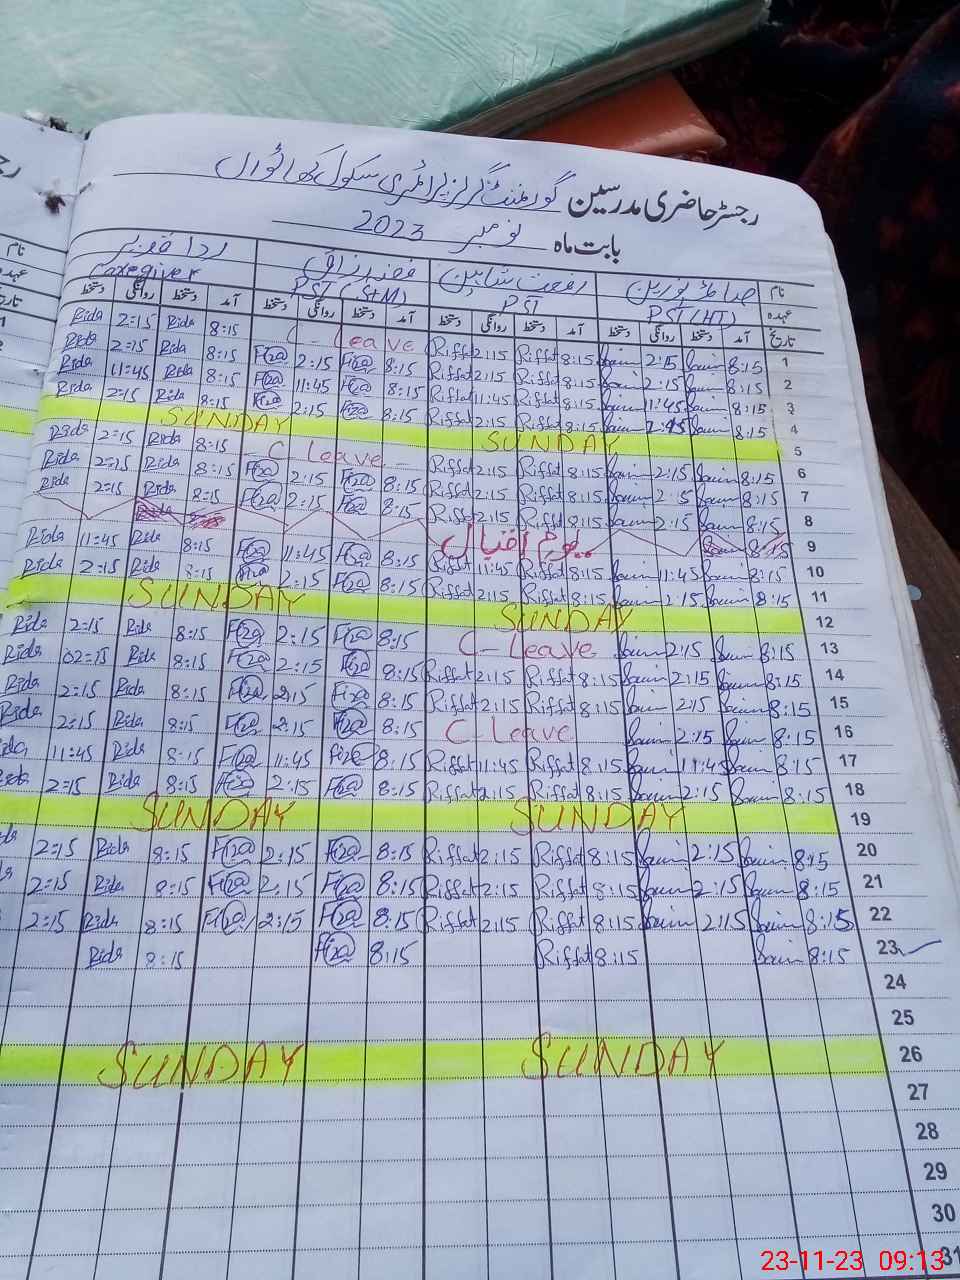 رجسٹر حاضری مدرسین گورنمنٹ گرلز پرائمری سکول
بابت ماہ نومبر 2023
نام صائمہ نورین رفعت شاہین فضہ رزاق ردا
عہدہ PST (HT) PST PST (S+M) Caregiver
تاریخ آمد دستخط روانگی دستخط آمد دستخط روانگی دستخط آمد دستخط روانگی دستخط آمد دستخط روانگی دستخط
Rida 2:15 Rida 8:15 C-Leave Riffat 2:15 Riffat 8:15 Saim 2:15 Saim 8:15 1
Rida 2:15 Rida 8:15 Fiza 2:15 Fiza 8:15 Riffat 2:15 Riffat 8:15 Saim 2:15 Saim 8:15 2
Rida 11:45 Rida 8:15 Fiza 11:45 Fiza 8:15 Riffat 11:45 Riffat 8:15 Saim 11:45 Saim 8:15 3
Rida 2:15 Rida 8:15 Fiza 2:15 Fiza 8:15 Riffat 2:15 Riffat 8:15 Saim Saim 8:15 4
SUNDAY SUNDAY 5
Rida 2:15 Rida 8:15 - C Leave - Riffat 2:15 Riffat 8:15 Saim 2:15 Saim 8:15 6
Rida 2:15 Rida 8:15 Fiza 2:15 Fiza 8:15 Riffat 2:15 Riffat 8:15 Saim 2:15 Saim 8:15 7
Rida 2:15 Rida 8:15 Fiza 2:15 Fiza 8:15 Riffat 2:15 Riffat 8:15 Saim 2:15 Saim 8:15 8
یوم اقبال Saim 8:15 9
Rida 11:45 Rida 8:15 Fiza 11:45 Fiza 8:15 Riffat 11:45 Riffat 8:15 Saim 11:45 Saim 8:15 10
Rida 2:15 Rida 8:15 Fiza 2:15 Fiza 8:15 Riffat 2:15 Riffat 8:15 Saim 2:15 Saim 8:15 11
SUNDAY SUNDAY 12
Rida 2:15 Rida 8:15 Fiza 2:15 Fiza 8:15 C-Leave Saim 2:15 Saim 8:15 13
Rida 02:15 Rida 8:15 Fiza 2:15 Fiza 8:15 Riffat 2:15 Riffat 8:15 Saim 2:15 Saim 8:15 14
Rida 2:15 Rida 8:15 Fiza 2:15 Fiza 8:15 Riffat 2:15 Riffat 8:15 Saim 2:15 Saim 8:15 15
Rida 2:15 Rida 8:15 Fiza 2:15 Fiza 8:15 C-Leave Saim 2:15 Saim 8:15 16
Rida 11:45 Rida 8:15 Fiza 11:45 Fiza 8:15 Riffat 11:45 Riffat 8:15 Saim 11:45 Saim 8:15 17
Rida 2:15 Rida 8:15 Fiza 2:15 Fiza 8:15 Riffat 2:15 Riffat 8:15 Saim 2:15 Saim 8:15 18
SUNDAY SUNDAY 19
2:15 Rida 8:15 Fiza 2:15 Fiza 8:15 Riffat 2:15 Riffat 8:15 Saim 2:15 Saim 8:15 20
2:15 Rida 8:15 Fiza 2:15 Fiza 8:15 Riffat 2:15 Riffat 8:15 Saim 2:15 Saim 8:15 21
2:15 Rida 8:15 Fiza 2:15 Fiza 8:15 Riffat 2:15 Riffat 8:15 Saim 2:15 Saim 8:15 22
Rida 8:15 Fiza 8:15 Riffat 8:15 Saim 8:15 23
24
25
SUNDAY SUNDAY 26
27
28
29
30
31
23-11-23 09:13